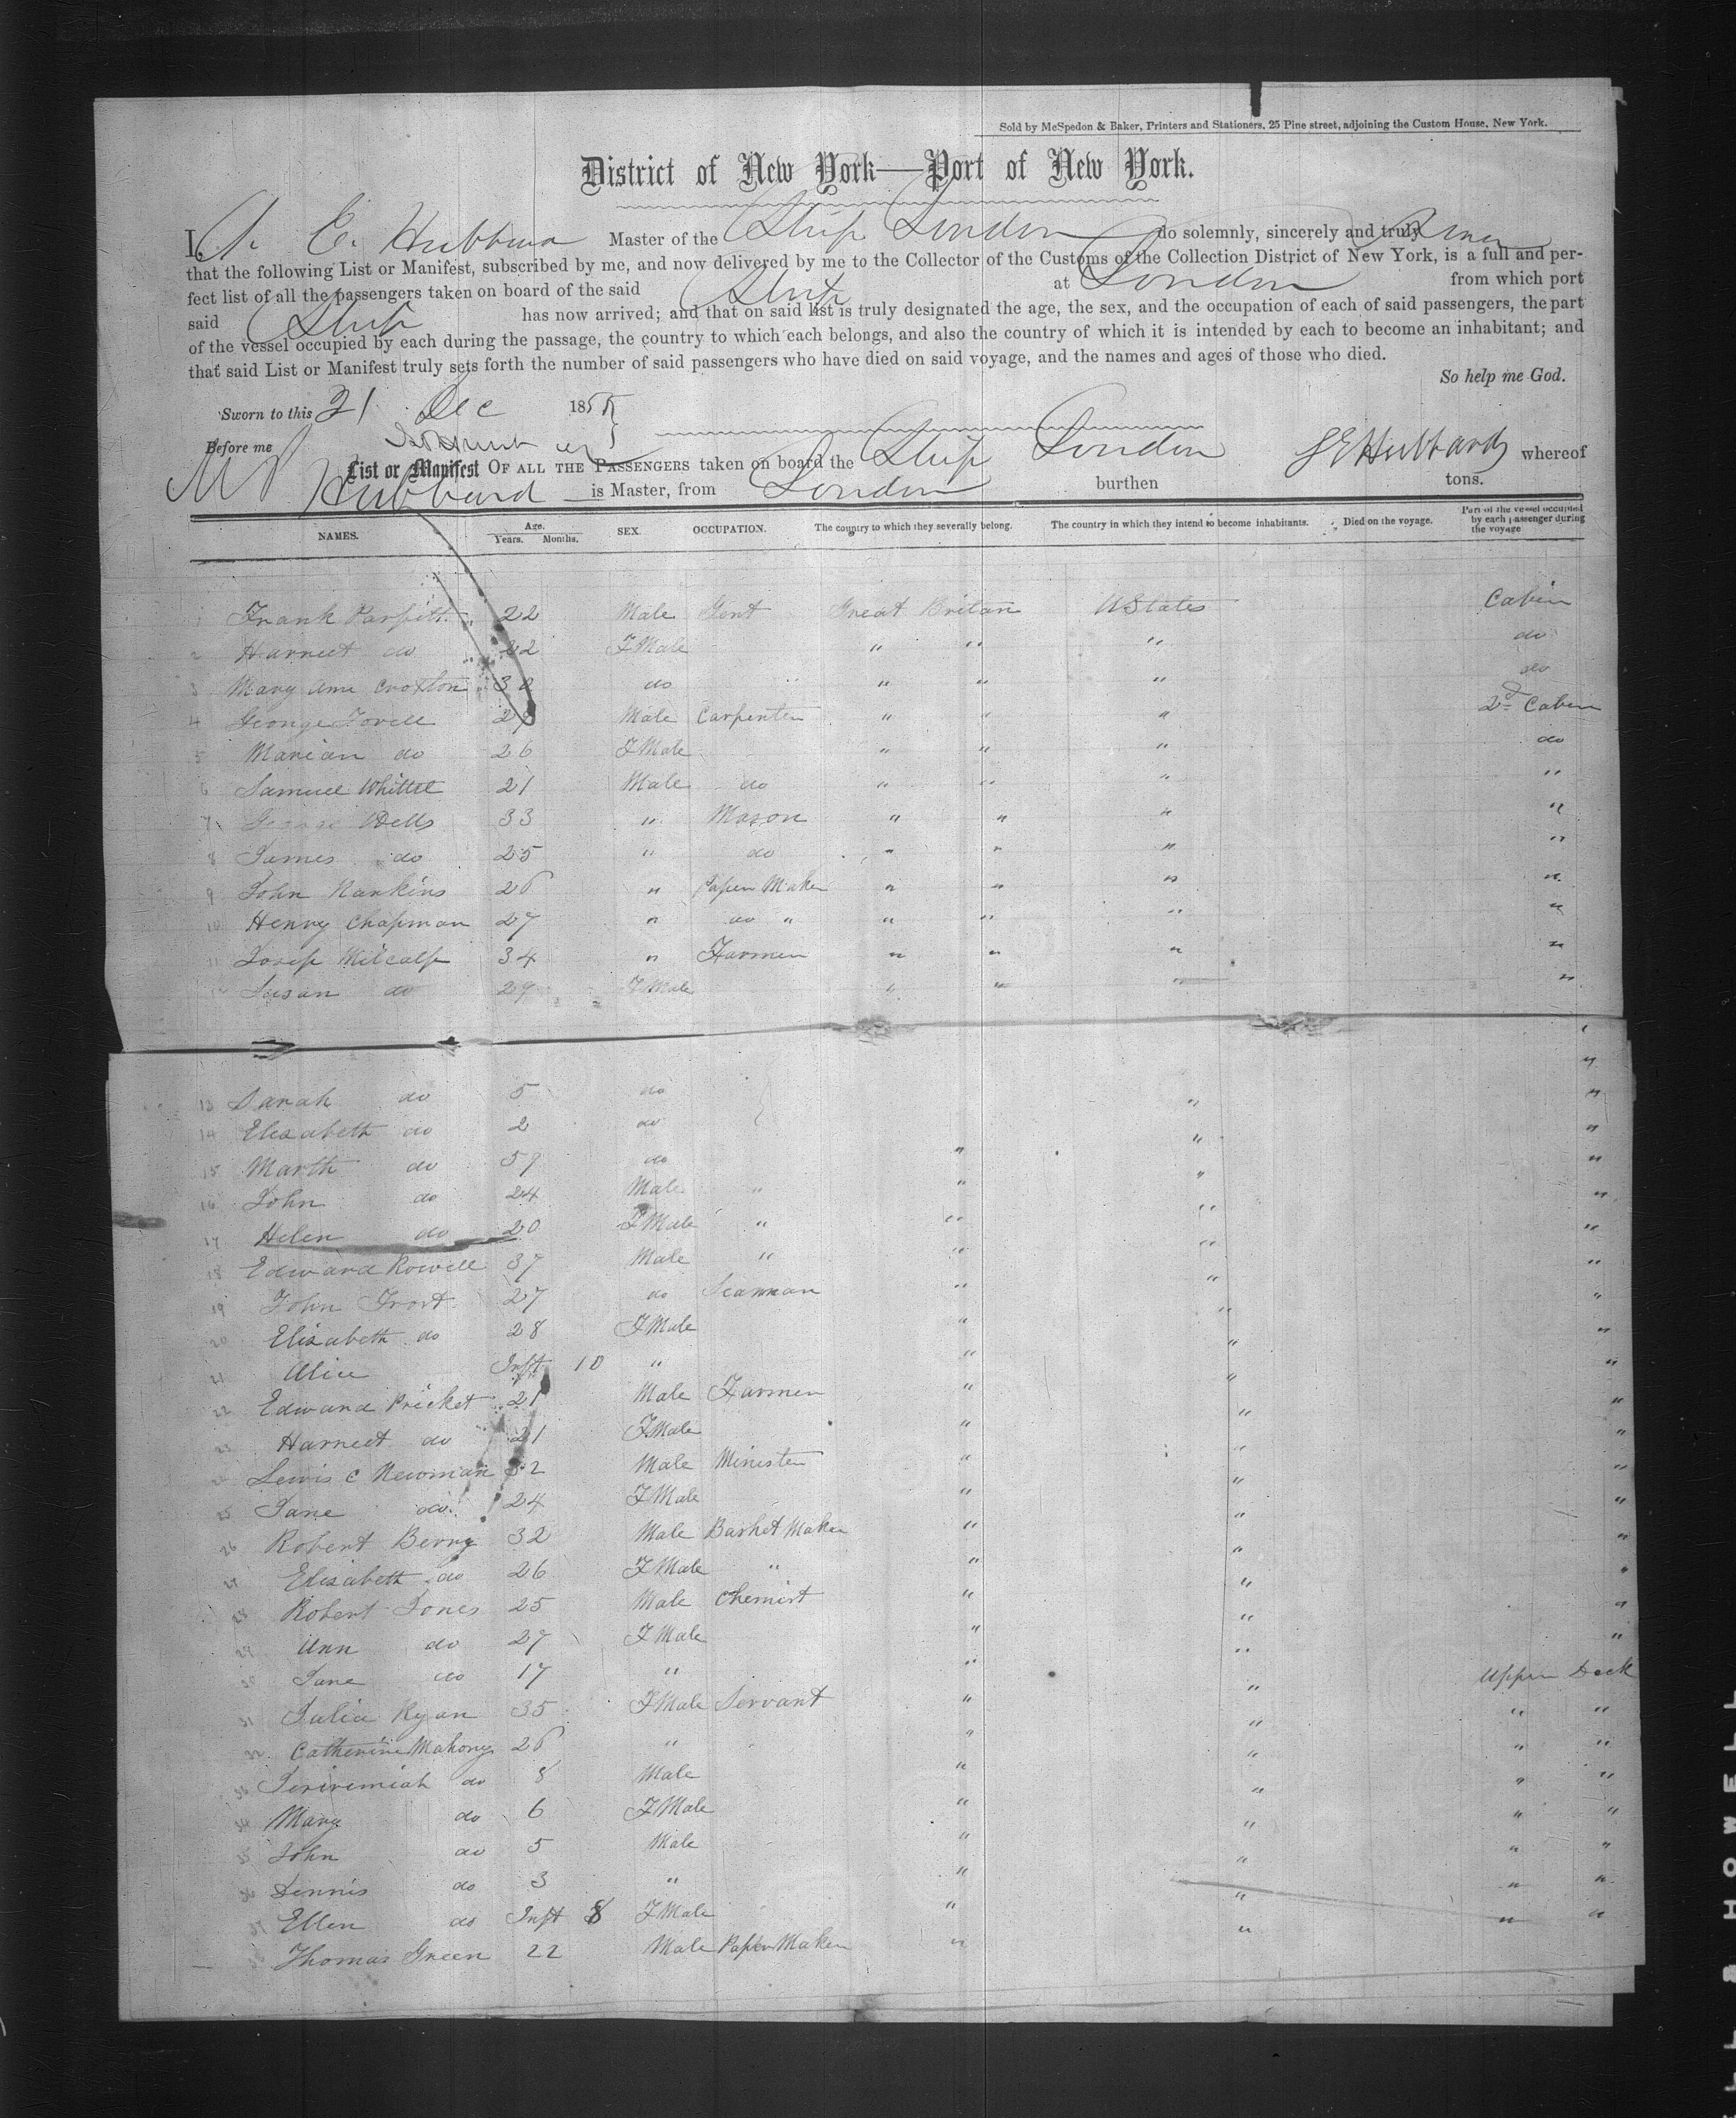 Sold by McSpedon & Baker, Printers and Stationers, 25 Pine street, adjoining the Custom House, New York.
District of New York—Port of New York.
I, E. Hubbard Master of the Ship London do solemnly, sincerely and truly
that the following List or Manifest, subscribed by me, and now delivered by me to the Collector of the Customs of the Collection District of New York, is a full and per-
fect list of all the passengers taken on board of the said Ship at London from which port
said Ship has now arrived; and that on said list is truly designated the age, the sex, and the occupation of each of said passengers, the part
of the vessel occupied by each during the passage, the country to which each belongs, and also the country of which it is intended by each to become an inhabitant; and
that said List or Manifest truly sets forth the number of said passengers who have died on said voyage, and the names and ages of those who died.
So help me God.
Sworn to this 31 Dec 1855
Before me
List or Manifest OF ALL THE PASSENGERS taken on board the Ship London whereof
Hubbard is Master, from London burthen tons.
SEHubbard
NAMES. Age. Years. Months. SEX. OCCUPATION. The country to which they severally belong. The country in which they intend to become inhabitants. Died on the voyage. Part of the vessel occupied by each passenger during the voyage
1 Frank Parfitt 22 Male Gent Great Britan UStates Cabin
2 Harriet do 22 FMale " " " do
3 Mary Ann Croxton 30 do " " " " do
4 George Tovell 29 Male Carpenter " " " 2d Cabin
5 Marian do 26 FMale " " " do
6 Samuel Whittel 21 Male do " " " "
7 George Wells 33 " Mason " " " "
8 James do 25 " do " " " "
9 John Rankins 26 " Paper Maker " " " "
10 Henry Chapman 27 " do " " " " "
11 Josep Mitcalf 34 " Farmer " " " "
12 Susan do 29 FMale " " " "
13 Sarah do 5 do " "
14 Elizabeth do 2 do " "
15 Marth do 59 do " " "
16 John do 24 Male " " " "
17 Helen do 20 FMale " " " "
18 Edward Rowell 37 Male " " " "
19 John Frost 27 do Seaman " " "
20 Elizabeth do 28 FMale " " "
21 Alice Inft 10 " " " "
22 Edward Pricket 21 Male Farmer " " "
23 Harriet do 21 FMale " " "
24 Lewis C Newman 32 Male Minister " " "
25 Jane do 24 FMale " " "
26 Robert Berry 32 Male Basket Maker " " "
27 Elizabeth do 26 FMale " " " "
28 Robert Jones 25 Male Chemist " " "
29 Ann do 27 FMale " " "
30 Jane do 17 " " " "
31 Julia Ryan 35 FMale Servant " " Upper Deck
32 Catherine Mahony 26 " " " " "
33 Jeriremiah do 8 Male " " " "
34 Mary do 6 FMale " " " "
35 John do 5 Male " " " "
36 Dennis do 3 " " " " "
37 Ellen do Inft 8 FMale " " " "
38 Thomas Green 22 Male Paper Maker " " " "